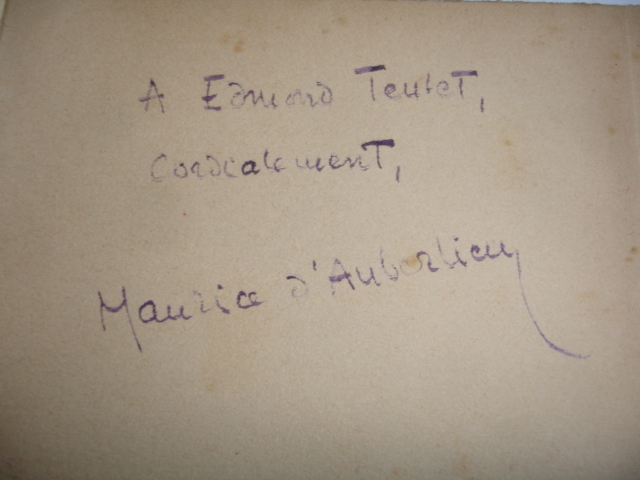 A Edmond Teulet,
Cordialement,
Maurice d'Auberlieu